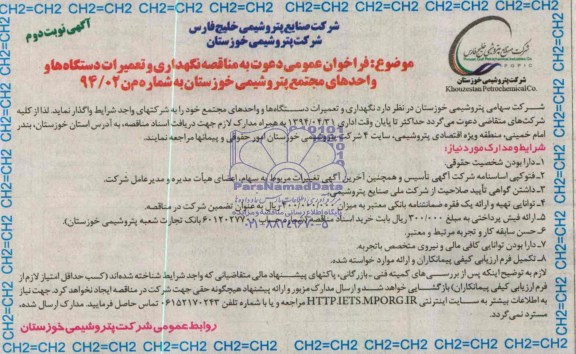 آگهی نوبت دوم
شرکت صنایع پتروشیمی خلیج فارس
شرکت پتروشیمی خوزستان
شرکت صنایع پتروشیمی خلیج فارس
شرکت پتروشیمی خوزستان
Khouzestan Petrochemical Co.
موضوع: فراخوان عمومی دعوت به مناقصه نگهداری و تعمیرات دستگاه‌ها و
واحدهای مجتمع پتروشیمی خوزستان به شماره من ۹۴/۰۲
شرکت سهامی پتروشیمی خوزستان در نظر دارد نگهداری و تعمیرات دستگاه‌ها و واحدهای مجتمع خود را به شرکتهای واجد شرایط واگذار نماید. لذا از کلیه
شرکت‌های متقاضی دعوت می‌گردد حداکثر تا پایان وقت اداری ۱۳۹۴/۰۴/۲۱ به همراه مدارک لازم جهت دریافت اسناد مناقصه، به آدرس استان خوزستان، بندر
امام خمینی، منطقه ویژه اقتصادی پتروشیمی، سایت ۴ شرکت پتروشیمی خوزستان امور حقوقی و پیمانها مراجعه نمایند.
شرایط و مدارک مورد نیاز:
۱ـ دارا بودن شخصیت حقوقی.
۲ـ فتوکپی اساسنامه شرکت آگهی تأسیس و همچنین آخرین آگهی تغییرات مربوط به سهام، اعضای هیأت مدیره و مدیرعامل شرکت.
۳ـ داشتن گواهی تأیید صلاحیت از شرکت ملی صنایع پتروشیمی.
۴ـ توانایی تهیه و ارائه یک فقره ضمانتنامه بانکی معتبر به میزان ریال به عنوان تضمین شرکت در مناقصه.
۵ـ ارائه فیش پرداختی به مبلغ ۳۰۰/۰۰۰ ریال بابت خرید اسناد مناقصه (شماره حساب بانک تجارت شعبه پتروشیمی خوزستان).
۶ـ حسن سابقه کار و تجربه مرتبط و معتبر.
۷ـ دارا بودن توانایی کافی مالی و نیروی متخصص باتجربه.
۸ـ تکمیل فرم ارزیابی کیفی پیمانکاران و ارائه موارد خواسته شده.
لازم به توضیح اینکه پس از بررسی های کمیته فنی ـ بازرگانی، پاکتهای پیشنهاد مالی متقاضیانی که واجد شرایط شناخته شده‌اند (کسب حداقل امتیاز لازم از
فرم ارزیابی کیفی پیمانکاران) بازگشایی خواهد شد و ارسال مدارک مزبور و ارائه پیشنهاد هیچگونه حقی جهت شرکت در مناقصه ایجاد نخواهد کرد. جهت نیاز
به اطلاعات بیشتر به سایت اینترنتی HTTP.IETS.MPORG.IR مراجعه و یا با شماره تلفن ۰۶۱۵۲۱۷۰۲۴۳ تماس حاصل فرمایید. مدارک ارسال شده،
مسترد نمی‌گردد.
روابط عمومی شرکت پتروشیمی خوزستان
ParsNamadData
۰۲۱-۸۸۳۴۹۶۷۰-۵